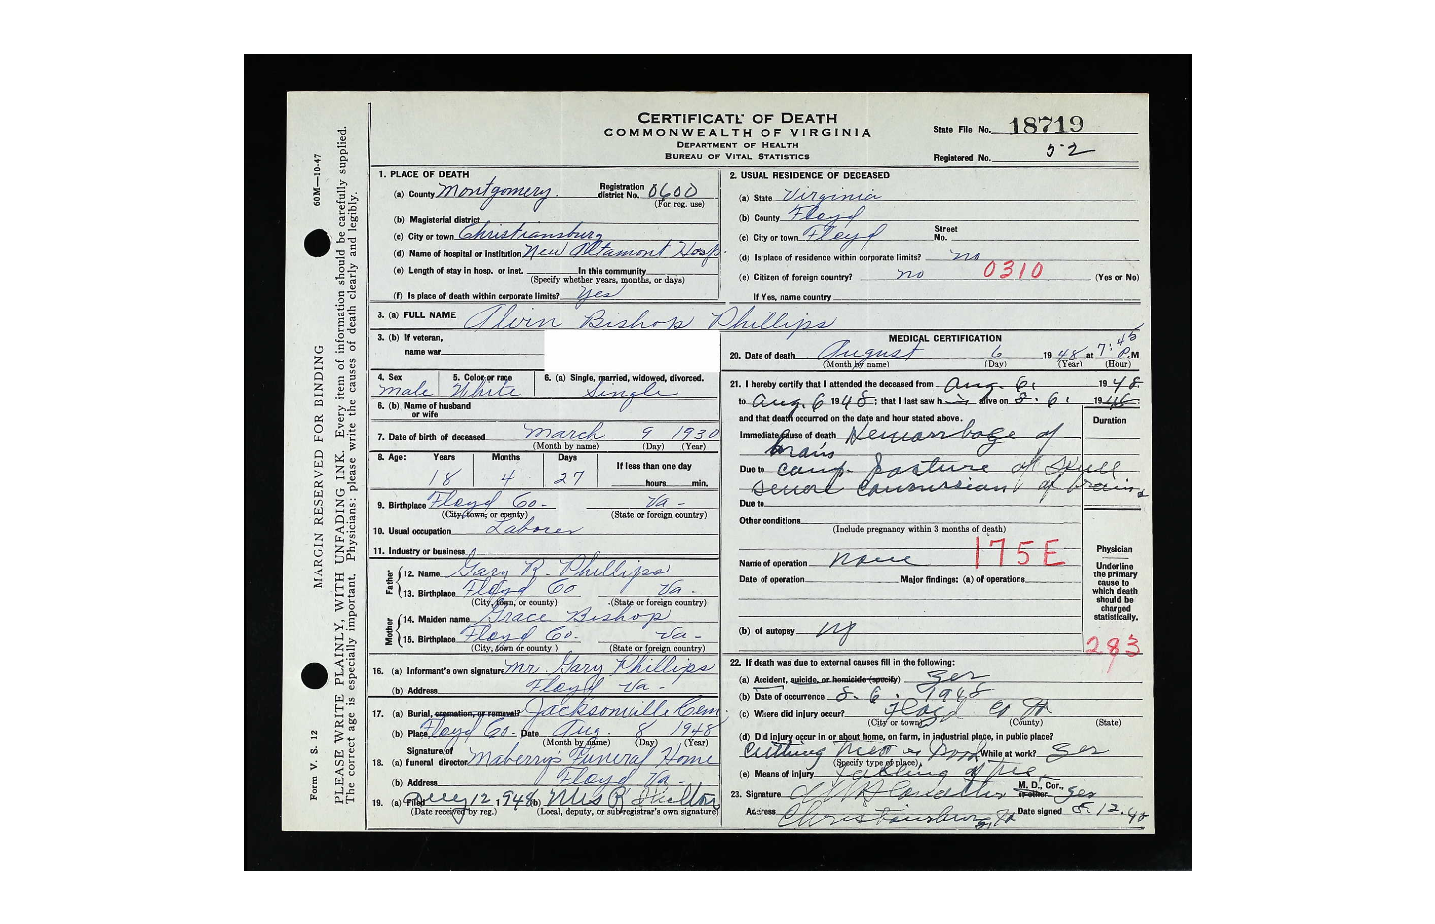 CERTIFICATE OF DEATH
COMMONWEALTH OF VIRGINIA
DEPARTMENT OF HEALTH
BUREAU OF VITAL STATISTICS
State File No. 18719
Registered No. 52
60M—10-47
MARGIN RESERVED FOR BINDING
PLEASE WRITE PLAINLY, WITH UNFADING INK. Every item of information should be carefully supplied.
The correct age is especially important. Physicians: please write the causes of death clearly and legibly.
Form V. S. 12
1. PLACE OF DEATH
(a) County Montgomery Registration district No. 0600
(For reg. use)
(b) Magisterial district
(c) City or town Christiansburg
(d) Name of hospital or institution New Altamont Hosp.
(e) Length of stay in hosp. or inst. In this community
(Specify whether years, months, or days)
(f) Is place of death within corporate limits? Yes
2. USUAL RESIDENCE OF DECEASED
(a) State Virginia
(b) County Floyd
(c) City or town Floyd Street No.
(d) Is place of residence within corporate limits? no
(e) Citizen of foreign country? no 0310 (Yes or No)
If Yes, name country
3. (a) FULL NAME Alvin Bishop Phillips
3. (b) If veteran,
name war
4. Sex 5. Color or race 6. (a) Single, married, widowed, divorced.
Male White Single
6. (b) Name of husband
or wife
7. Date of birth of deceased March 9 1930
(Month by name) (Day) (Year)
8. Age: Years Months Days If less than one day
18 4 27 hours min.
9. Birthplace Floyd Co. Va.
(City, town, or county) (State or foreign country)
10. Usual occupation Laborer
11. Industry or business
Father
12. Name Gary R. Phillips
13. Birthplace Floyd Co Va.
(City, town, or county) (State or foreign country)
Mother
14. Maiden name Grace Bishop
15. Birthplace Floyd Co. Va.
(City, town, or county) (State or foreign country)
16. (a) Informant's own signature Mr. Gary Phillips
(b) Address Floyd Va.
17. (a) Burial, cremation, or removal? Jacksonville Cem.
(b) Place Floyd Co. Date Aug. 8 1948
(Month by name) (Day) (Year)
Signature of
18. (a) funeral director Maberry's Funeral Home
(b) Address Floyd Va.
19. (a) Filed Aug 12, 1948 (b) Mrs R Skelton
(Date received by reg.) (Local, deputy, or sub-registrar's own signature)
MEDICAL CERTIFICATION
20. Date of death August 6 1948 at 7:45 P.M
(Month by name) (Day) (Year) (Hour)
21. I hereby certify that I attended the deceased from Aug. 6, 1948
to Aug. 6 1948; that I last saw h alive on 8. 6. 1948
and that death occurred on the date and hour stated above.
Duration
Immediate cause of death Hemorrhage of
brain
Due to comp. fracture of Skull
concussion of brain
Due to
Other conditions
(Include pregnancy within 3 months of death)
Name of operation None 175E
Date of operation Major findings: (a) of operations
(b) of autopsy
Physician
Underline
the primary
cause to
which death
should be
charged
statistically.
283
22. If death was due to external causes fill in the following:
(a) Accident, suicide, or homicide (specify) yes
(b) Date of occurrence 8. 6. 1948
(c) Where did injury occur? Floyd Co
(City or town) (County) (State)
(d) Did injury occur in or about home, on farm, in industrial place, in public place?
Cutting While at work? yes
(Specify type of place)
(e) Means of injury of tree
23. Signature M. D., Cor., or other
Address Christiansburg Va Date signed 8.12.48